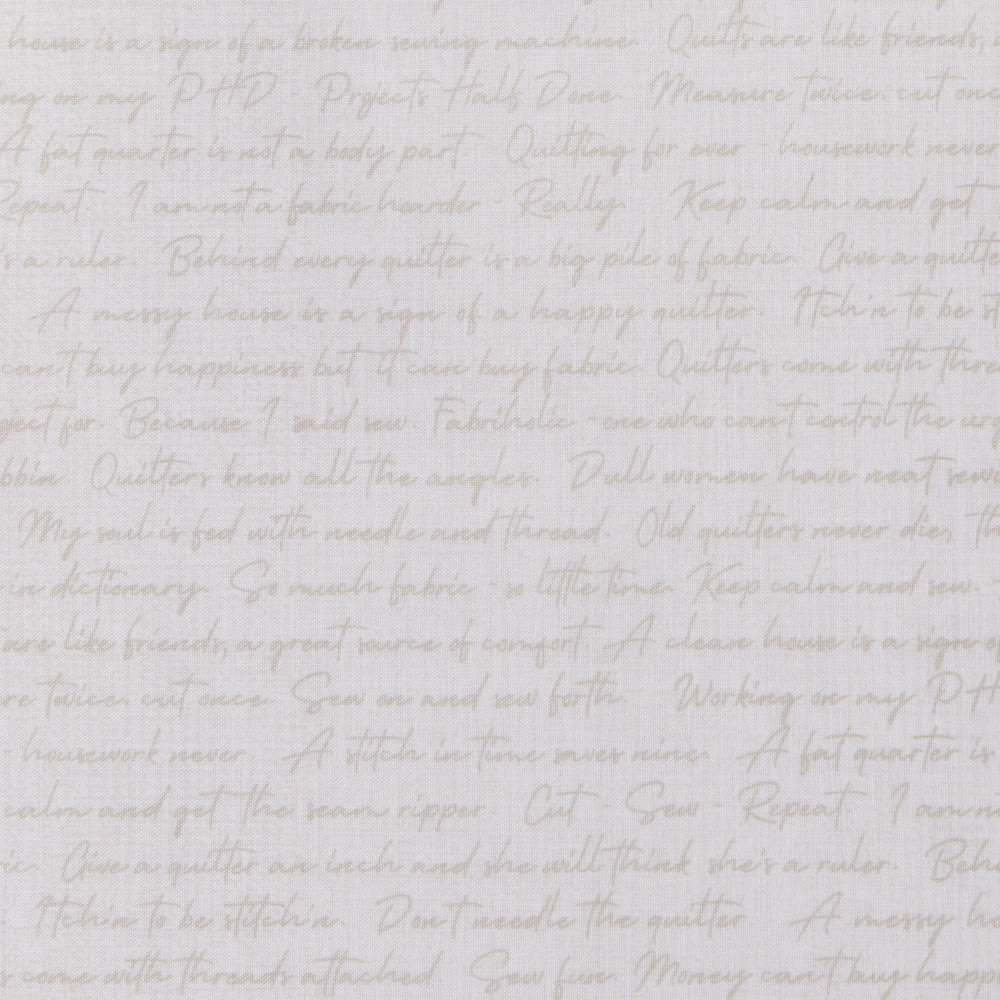 house is a sign of a broken sewing machine. Quilts are like friends,
ng on my PHD - Projects Half Done. Measure twice, cut onc
A fat quarter is not a body part. Quilting for ever - housework never
Repeat. I am not a fabric hoarder - Really. Keep calm and get
's a ruler. Behind every quilter is a big pile of fabric. Give a quilte
A messy house is a sign of a happy quilter. Itch'n to be st
can't buy happiness but it can buy fabric. Quilters come with thre
ject for. Because I said sew. Fabriholic - one who can't control the urg
bbin. Quilters know all the angles. Dull women have neat sew
My soul is fed with needle and thread. Old quilters never die, th
in dictionary. So much fabric - so little time. Keep calm and sew.
are like friends, a great source of comfort. A clean house is a sign of
re twice, cut once. Sew on and sew forth. Working on my PH
- housework never. A stitch in time saves nine. A fat quarter is
calm and get the seam ripper. Cut - Sew - Repeat. I am n
ric. Give a quilter an inch and she will think she's a ruler. Beh
. Itch'n to be stitch'n. Don't needle the quilter. A messy ho
s come with threads attached. Sew fun. Money can't buy happ